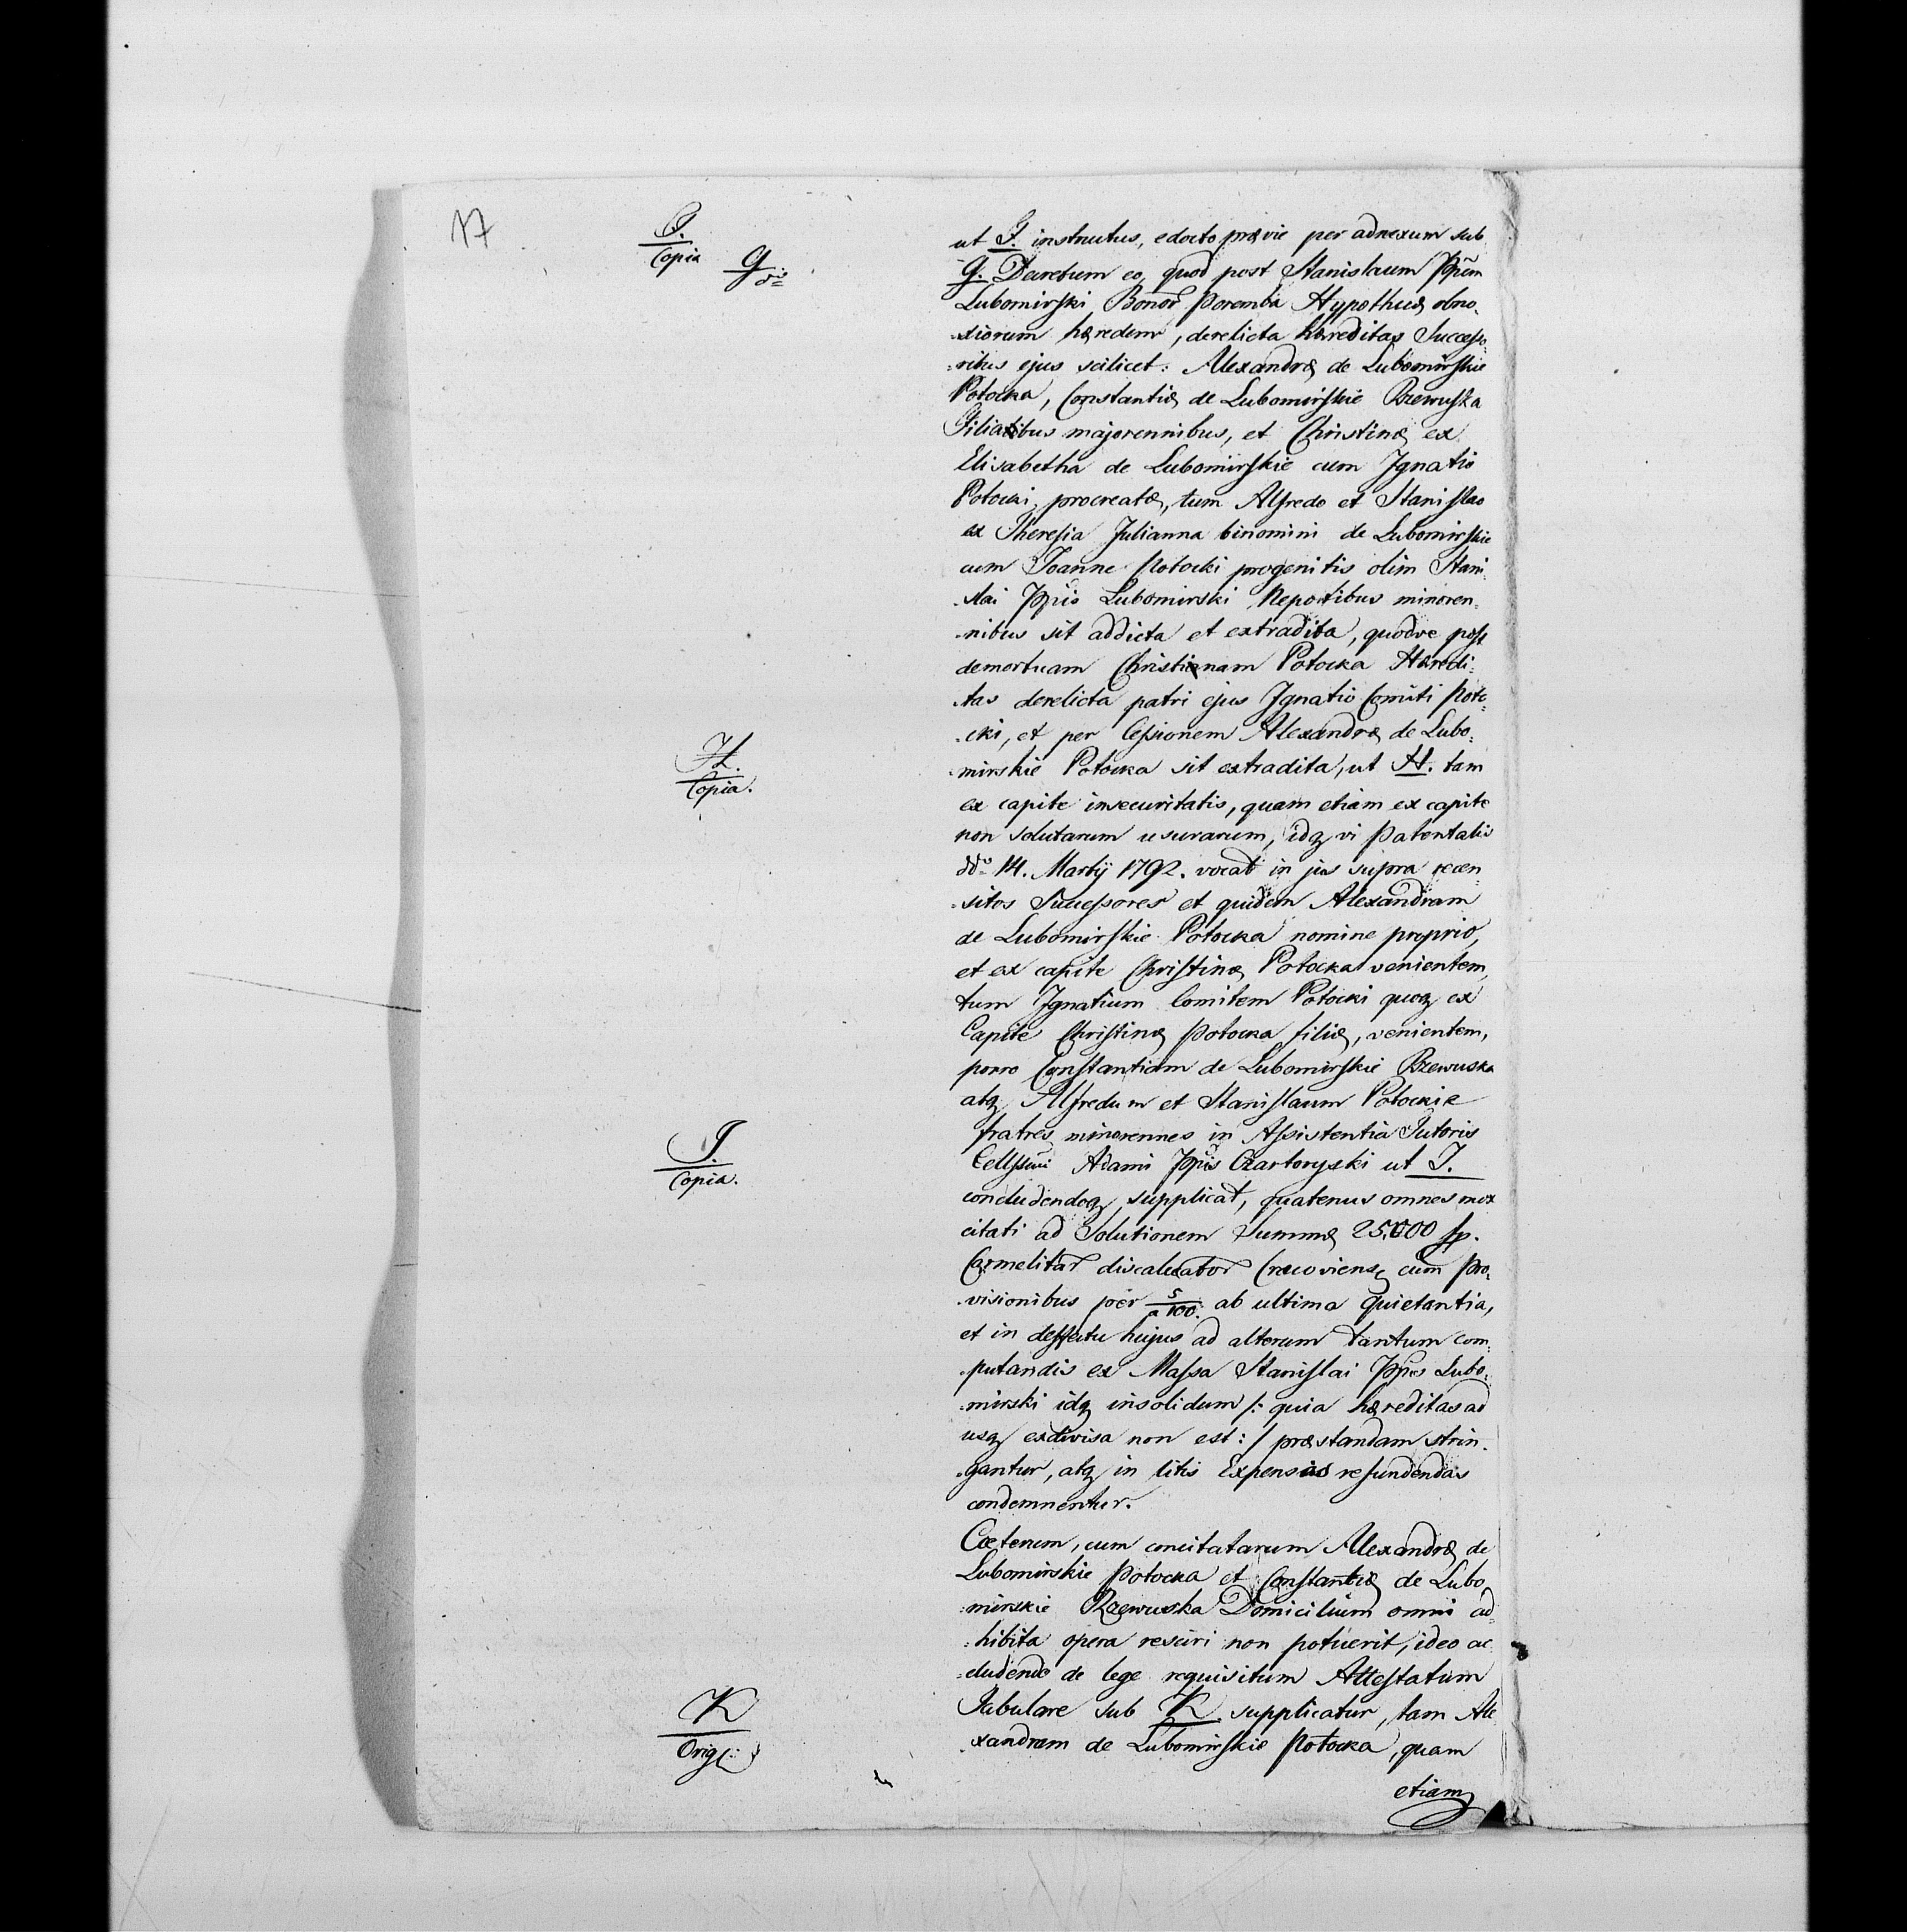 17
J.
Copia
G
dis
ut J. instructus, edocto prævie per adnexum sub
G. Decretum eo, quod post Stanislaum Ppem
Lubomirski Bonor Poremba Hypothecæ obno-
-xiorum hæredem, derelicta hæreditas Successo-
-ribus ejus scilicet: Alexandræ de Lubomirskie
Potocka, Constantiæ de Lubomirskie Rzewuska
Filiabus majorennibus, et Christinæ ex
Elisabetha de Lubomirskie cum Ignatio
Potocki procreatæ, tum Alfredo et Stanislao
ex Theresia Julianna binomini de Lubomirskie
cum Joanne Potocki progenitis olim Stani-
-slai Ppis Lubomirski Nepotibus minoren-
-nibus sit addicta et extradita, quodve post
demortuam Christinam Potocka Hæredi-
-tas derelicta patri ejus Ignatio Comiti Poto-
-cki, et per Cessionem Alexandræ de Lubo-
-mirskie Potocka sit extradita, ut H. tam
H.
Copia.
ex capite insecuritatis, quam etiam ex capite
non solutarum usurarum, idq vi Patentalis
ddo 14. Martÿ 1792. vocat in jus supra recen-
-sitos Successores et quidem Alexandram
de Lubomirskie Potocka nomine proprio,
et ex capite Christinæ Potocka venientem,
tum Ignatium Comitem Potocki quoq ex
Capite Christinæ Potocka filiæ, venientem,
porro Constantiam de Lubomirskie Rzewuska
atq Alfredum et Stanislaum Potockie
fratres minorennes in Assistentia Tutoris
Cellssimi Adami Ppis Czartoryski ut J.
J.
Copia.
concludendoq supplicat, quatenus omnes mox
citati ad Solutionem Summæ 25000 fp.
Carmelitar discalceator Cracoviens, cum pro-
-visionibus per 5/100. ab ultima quietantia,
et in deffectu hujus ad alterum tantum com-
-putandis ex Massa Stanislai Ppis Lubo-
-mirski idq insolidum /: quia hæreditas ad
usq exdivisa non est :/ præstandam strin-
-gantur, atq in litis Expensas refundendas
condemnentur.
Cæterum, cum concitatarum Alexandræ de
Lubomirskie Potocka et Constantiæ de Lubo-
-mirskie Rzewuska Domicilium omni ad-
-hibita opera resciri non potuerit, ideo ac-
-cludendo de lege requisitum Attestatum
Tabulare sub K. supplicatur, tam Ale-
K
Orig:
-xandram de Lubomirskie Potocka, quam
etiam